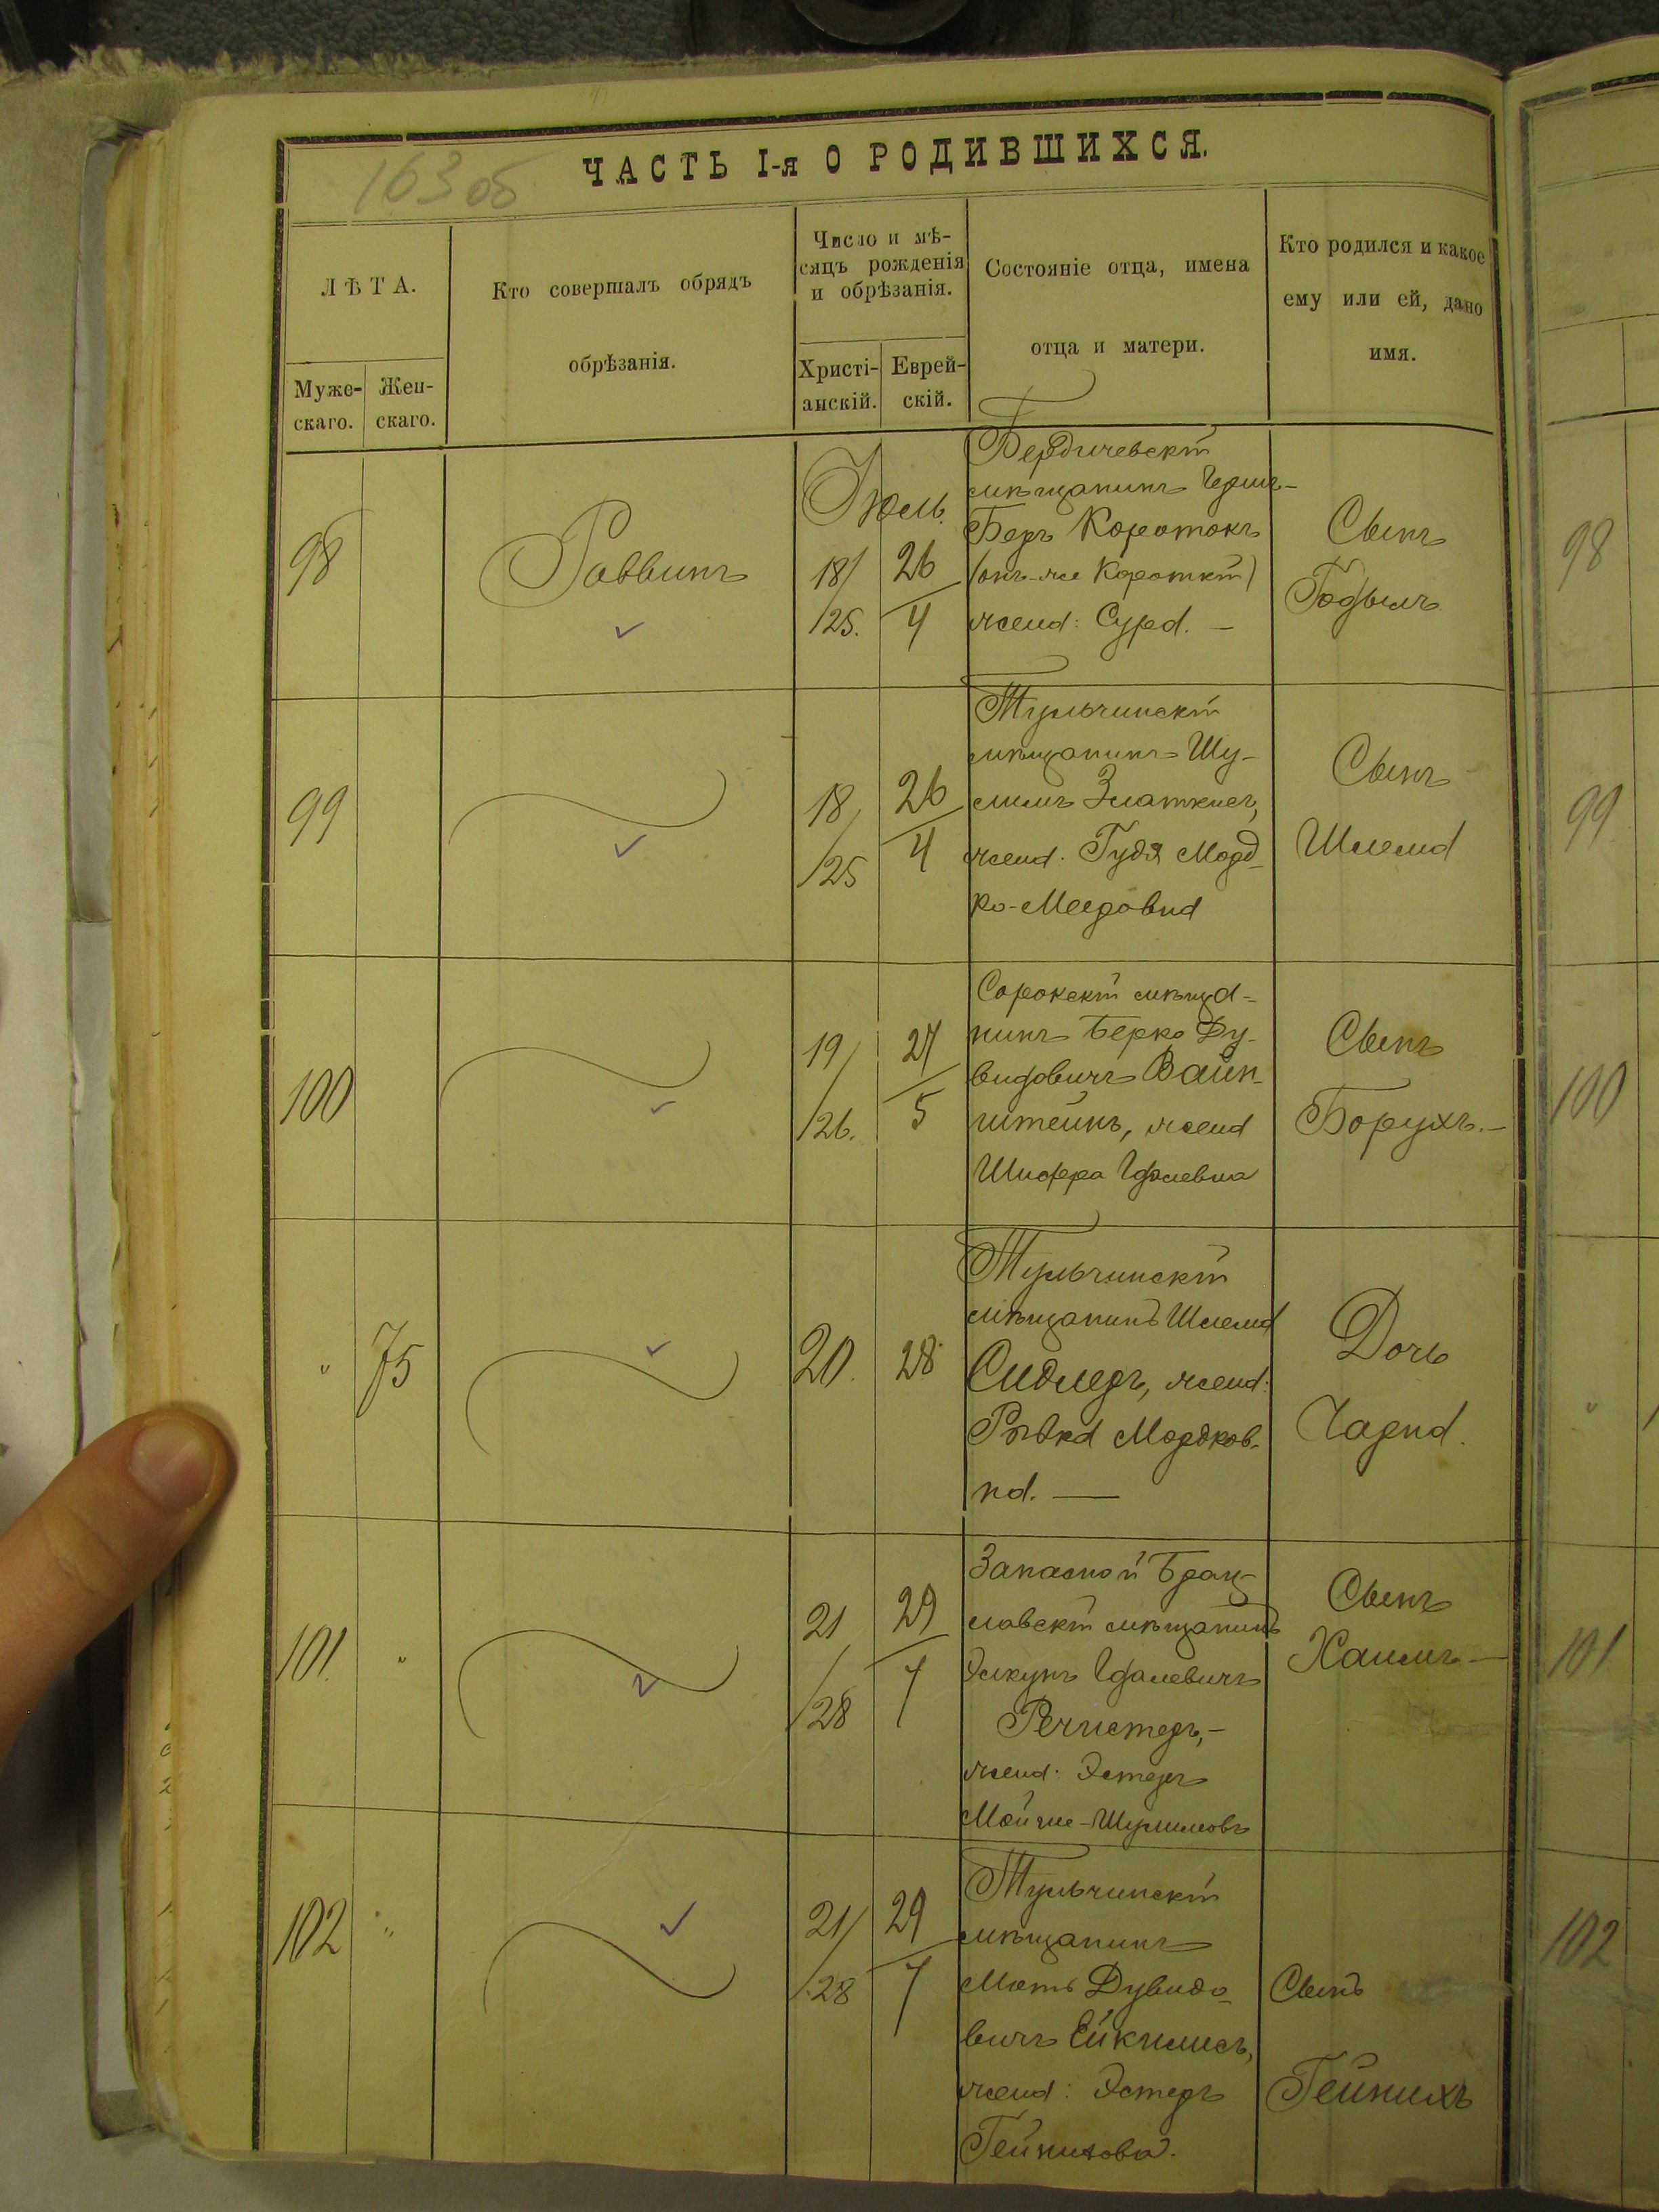 163 об
ЧАСТЬ I-я О РОДИВШИХСЯ.
ЛѢТА.
Муже-
скаго.
Жен-
скаго.
Кто совершалъ обрядъ
обрѣзанія.
Число и мѣ-
сяцъ рожденія
и обрѣзанія.
Христі-
анскій.
Еврей-
скій.
Состояніе отца, имена
отца и матери.
Кто родился и какое
ему или ей, дано
имя.
98
Раввинъ
Іюль.
18/
/25.
26
4
Бердичевскій
мѣщанинъ Герш-
Беръ Коротокъ
(онъ-же Короткій)
жена: Сура. —
Сынъ
98
99
18/
/25
26
4
Тульчинскій
мѣщанинъ Шу-
лимъ Златкисъ,
жена: ГудяМорд-
ко-Мееровна
Сынъ
Шлема
99
100
19/
/26.
27
5
Сорокскій мѣща-
нинъ Берко Ду-
видовичъ Вайн-
штейнъ, жена
Шифра
Сынъ
Борухъ.—
100
"
75
20.
28
Тульчинскій
мѣщанинъ Шлема
Сидлеръ, жена:
Рывка Мордков-
на. —
Дочь
Чарна.
"
101
"
21/
/28
29
7
Запасной Брац-
лавскій мѣщанинъ
Элкунъ
Речистеръ,—
жена: Эстеръ
Мойше-Шулимовъ
Сынъ
Хаимъ —
101
102
"
21/
/28
29
7
Тульчинскій
мѣщанинъ
Моть Дувидо-
вичъ Ейкилисъ,
жена: Эстеръ
Гейнихова.
Сынъ
Гейнихъ
102